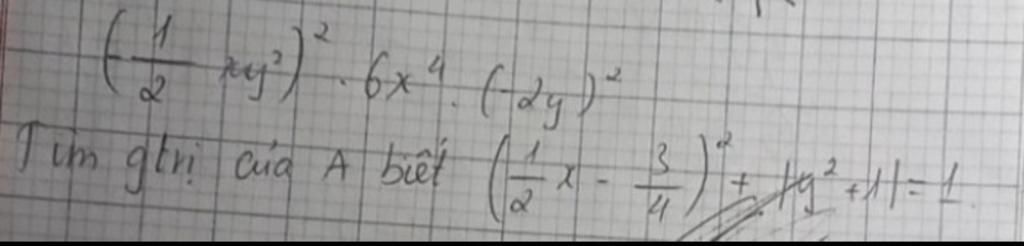 (1/2 xy²)² . 6x⁴ . (-2y)²
Tìm gtrị của A biết (1/2 x - 3/4)² + |y² + 1| = 1